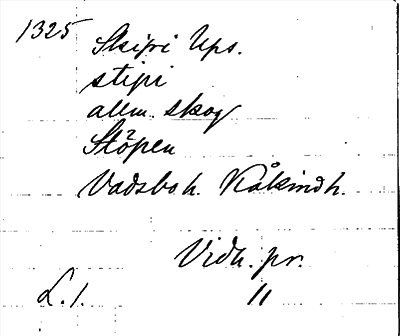 1325 Skipi Ups.
stipi
allm. skog
Stöpen
Vadsbo h. Kåkindh.
Vidh. pr.
L. 1. 11